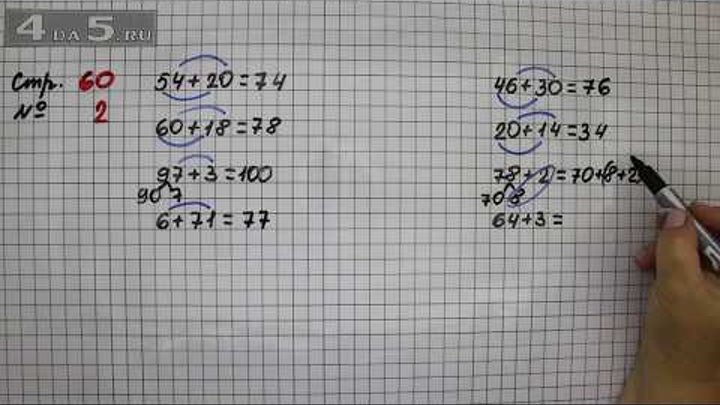 4DA5.RU
Стр. 60
№ 2
54+20=74
60+18=78
97+3=100
90 7
6+71=77
46+30=76
20+14=34
78+2=70+(8+2)
70 8
64+3=